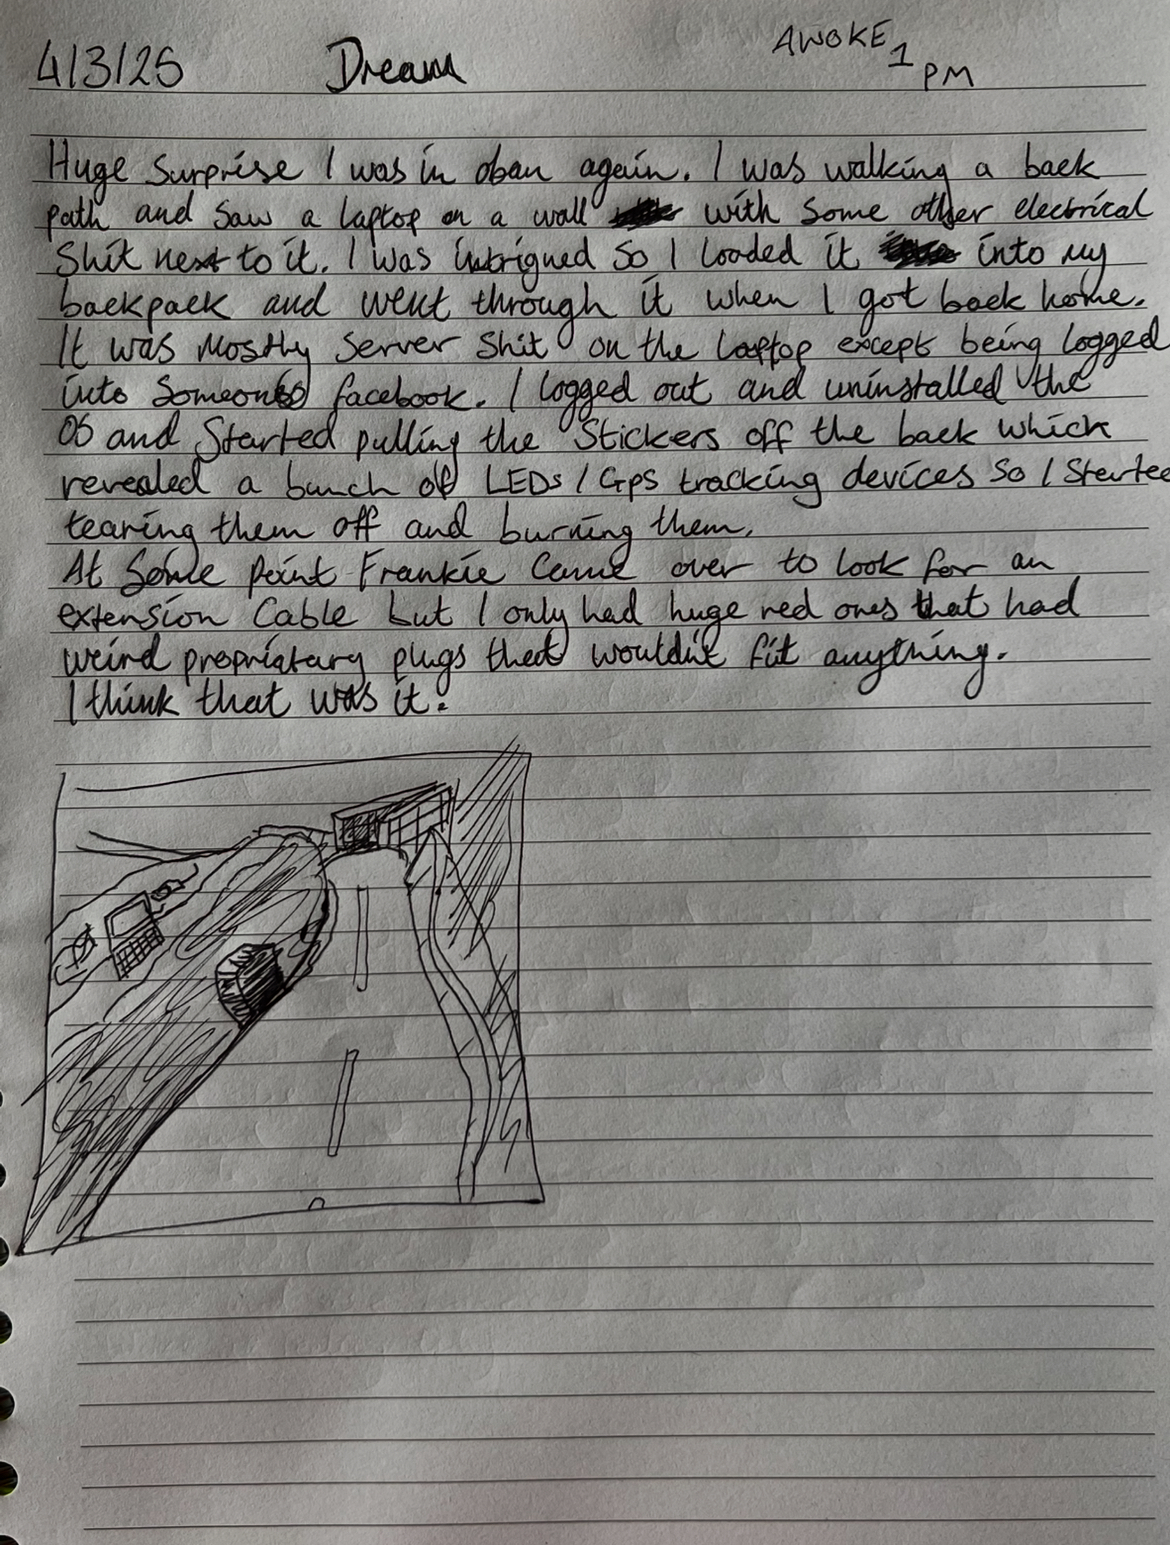 4/3/25 Dream AWOKE 1 PM
Huge Surprise I was in oban again. I was walking a back
path and saw a laptop on a wall with some other electrical
Shit next to it. I was intrigued So I loaded it into my
backpack and went through it when I got back home.
It was Mostly Server Shit on the laptop except being logged
into Someones facebook. I logged out and uninstalled the
OS and Started pulling the Stickers off the back which
revealed a bunch of LEDs / Gps tracking devices So I Started
tearing them off and burning them.
At Some point Frankie Came over to look for an
extension Cable but I only had huge red ones that had
weird propriatary plugs that wouldn't fit anything.
I think that was it.